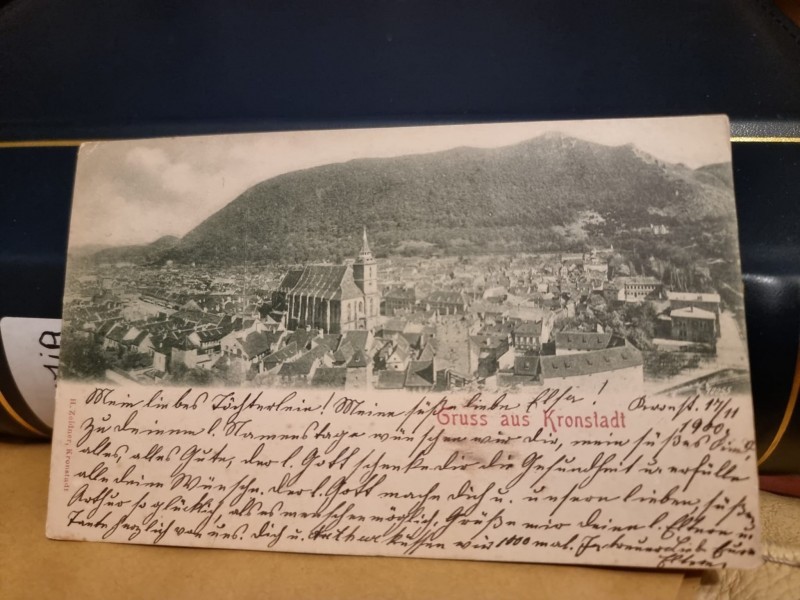 Gruss aus Kronstadt
H. Zeidner, Kronstadt
Mein liebes Töchterlein! Meine süße liebe Elsa! Kronst. 17/11
1900.
Zu deinem l. Namenstage wünschen wir dir, mein süßes
alles, alles Gute, der l. Gott schenke dir die Gesundheit u. erfülle
alle deine Wünsche. der l. Gott mache dich u. unsern lieben, süßen
Arthur so glücklich als es menschenmöglich. Grüße mir deine l. Eltern u.
Tante herzlich von uns. Dich u. Arthur küssen wir 1000 mal. Eure
Eltern